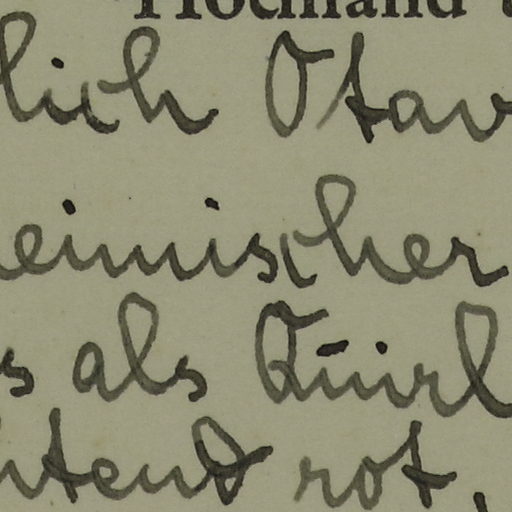 Hochland
lich Otav
heimischer
s als Quirl
htend rot,